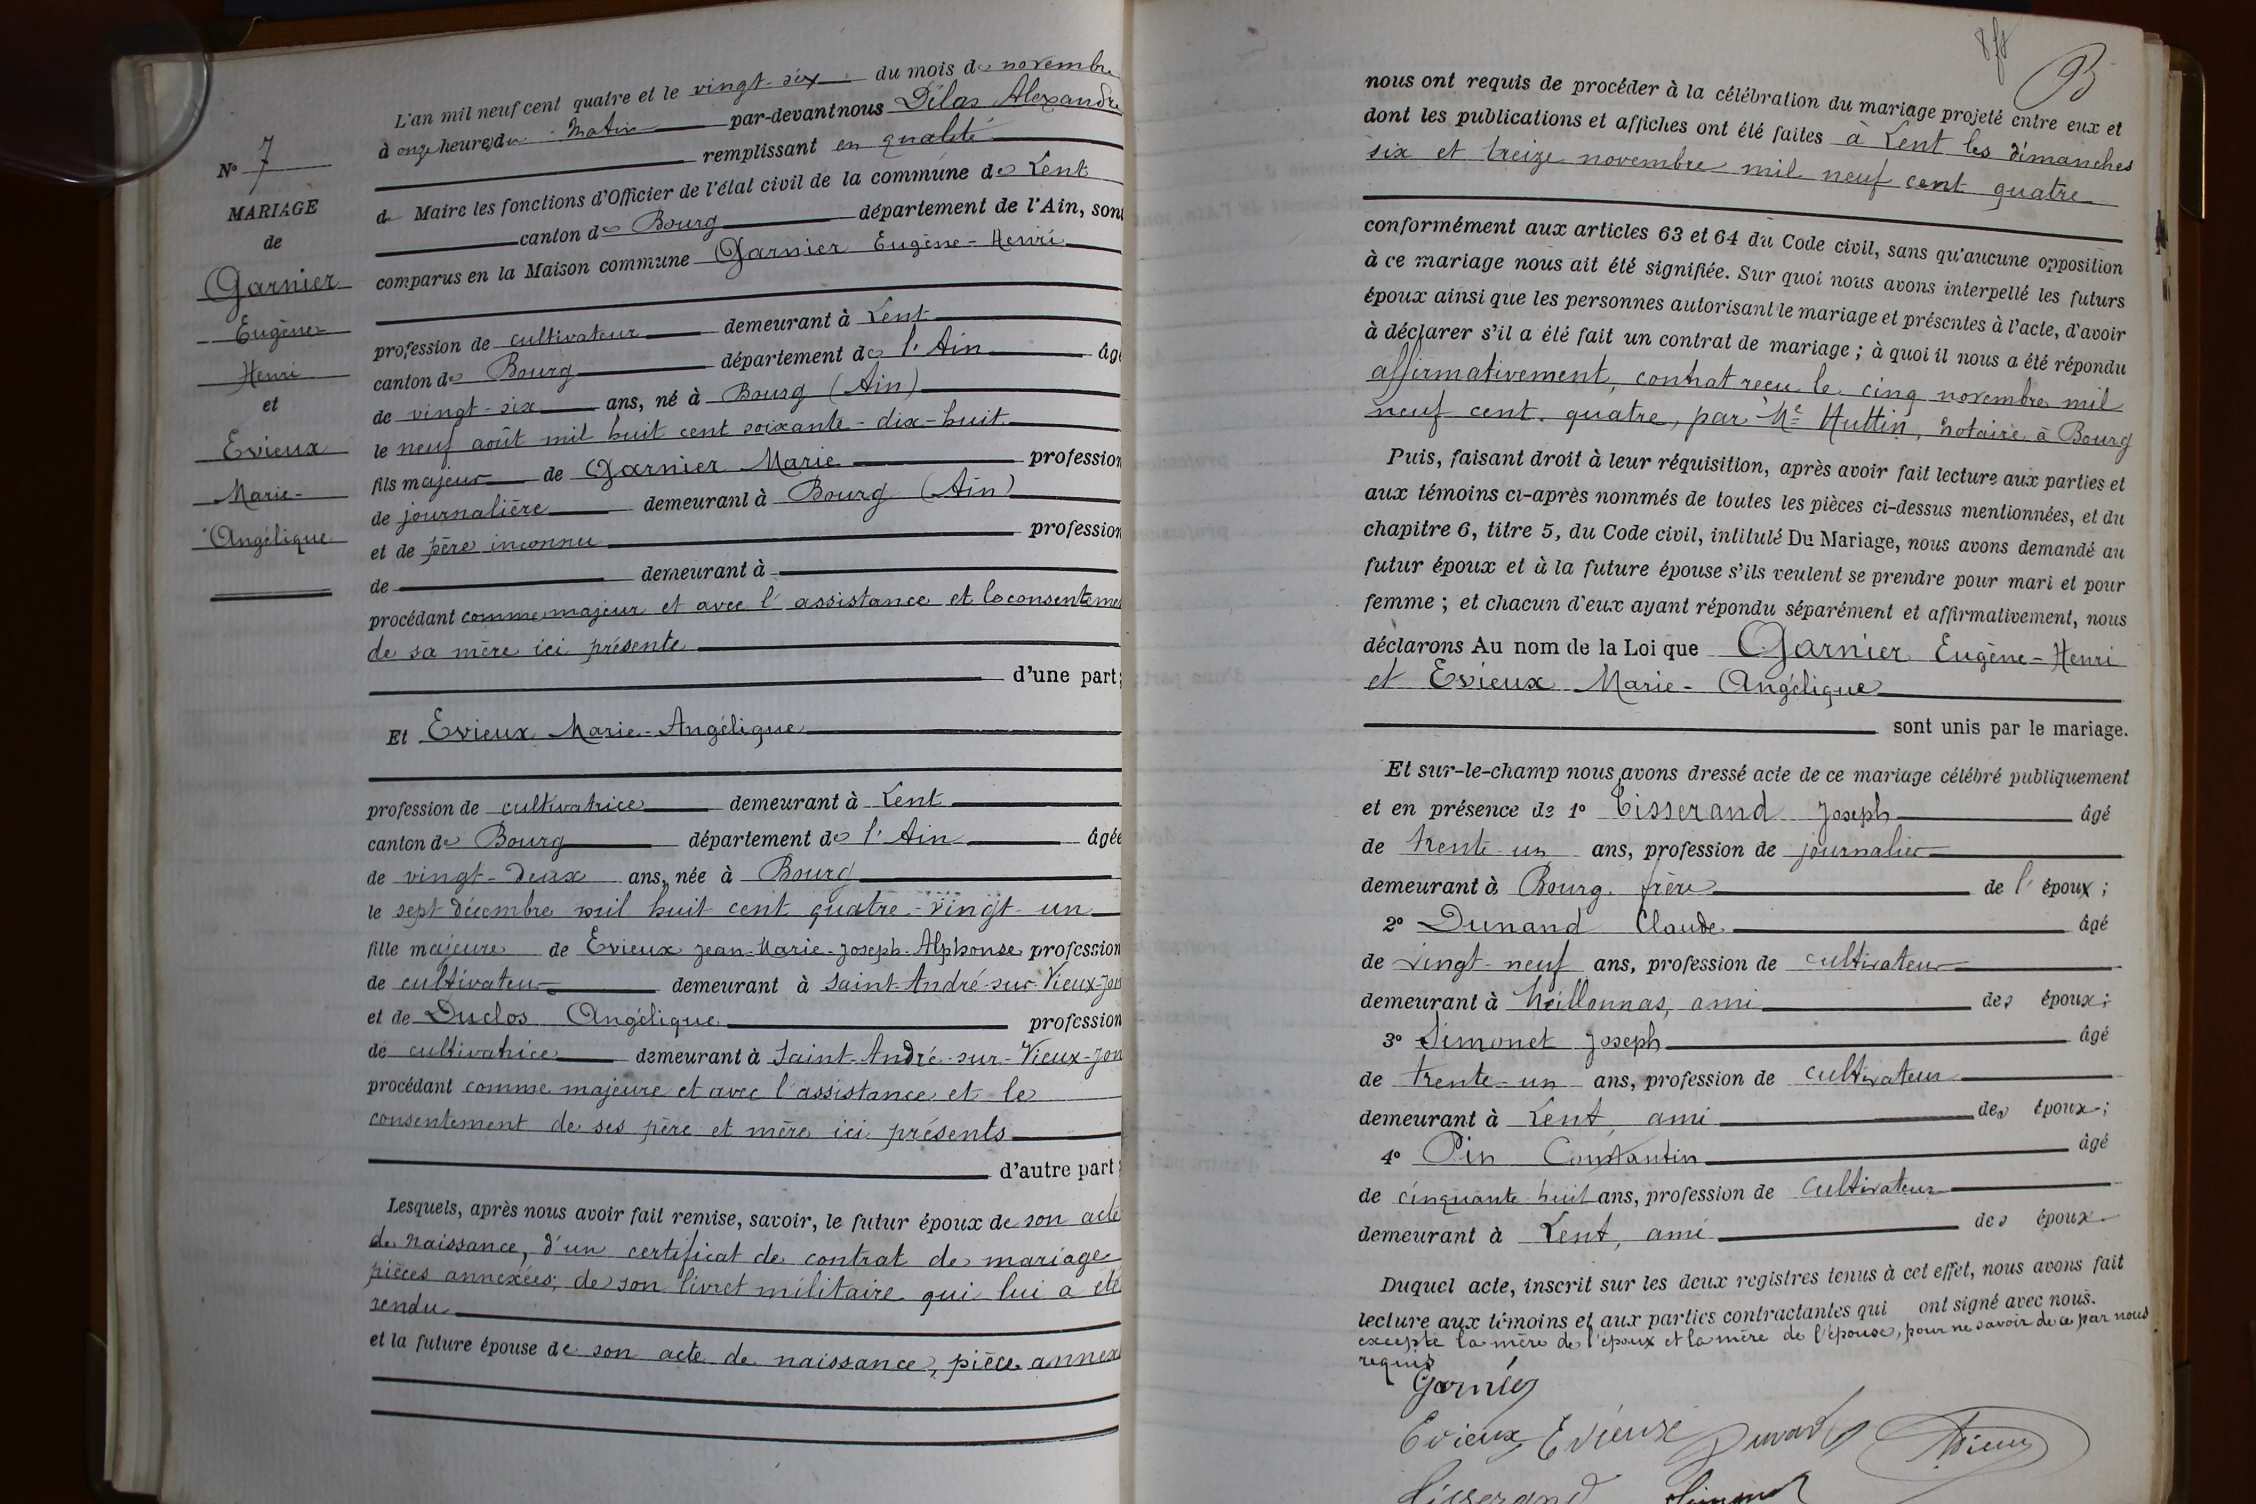 L'an mil neuf cent quatre et le vingt-six du mois de novembre
à onze heures du matin par-devant nous Délas Alexandre
remplissant en qualité
de Maire les fonctions d'Officier de l'état civil de la commune de Lent
canton de Bourg département de l'Ain, sont
comparus en la Maison commune Garnier Eugène-Henri
profession de cultivateur demeurant à Lent
canton de Bourg département de l'Ain âgé
de vingt-six ans, né à Bourg (Ain)
le neuf août mil huit cent soixante-dix-huit
fils majeur de Garnier Marie profession
de journalière demeurant à Bourg (Ain)
et de père inconnu profession
de demeurant à
procédant comme majeur et avec l'assistance et le consentemen
de sa mère ici présente
d'une part;
Et Evieux Marie-Angélique
profession de cultivatrice demeurant à Lent
canton de Bourg département de l'Ain âgée
de vingt-deux ans, née à Bourg
le sept décembre mil huit cent quatre-vingt-un
fille majeure de Evieux Jean-Marie-Joseph-Alphonse profession
de cultivateur demeurant à Saint-André-sur-Vieux-Jon
et de Duclos Angélique profession
de cultivatrice demeurant à Saint-André-sur-Vieux-Jon
procédant comme majeure et avec l'assistance et le
consentement de ses père et mère ici présents
d'autre part;
Lesquels, après nous avoir fait remise, savoir, le futur époux de son acte
de naissance, d'un certificat de contrat de mariage
pièces annexées; de son livret militaire qui lui a été
rendu
et la future épouse de son acte de naissance, pièce annex
N° 7
MARIAGE
de
Garnier
Eugène
Henri
et
Evieux
Marie-
Angélique
B
nous ont requis de procéder à la célébration du mariage projeté entre eux et
dont les publications et affiches ont été faites à Lent les dimanches
six et treize novembre mil neuf cent quatre
conformément aux articles 63 et 64 du Code civil, sans qu'aucune opposition
à ce mariage nous ait été signifiée. Sur quoi nous avons interpellé les futurs
époux ainsi que les personnes autorisant le mariage et présentes à l'acte, d'avoir
à déclarer s'il a été fait un contrat de mariage; à quoi il nous a été répondu
affirmativement, contrat reçu le cinq novembre mil
neuf cent quatre, par Me Huttin, notaire à Bourg
Puis, faisant droit à leur réquisition, après avoir fait lecture aux parties et
aux témoins ci-après nommés de toutes les pièces ci-dessus mentionnées, et du
chapitre 6, titre 5, du Code civil, intitulé Du Mariage, nous avons demandé au
futur époux et à la future épouse s'ils veulent se prendre pour mari et pour
femme; et chacun d'eux ayant répondu séparément et affirmativement, nous
déclarons Au nom de la Loi que Garnier Eugène-Henri
et Evieux Marie-Angélique
sont unis par le mariage.
Et sur-le-champ nous avons dressé acte de ce mariage célébré publiquement
et en présence de 1° Tisserand Joseph âgé
de trente-un ans, profession de journalier
demeurant à Bourg frère de l'époux;
2° Dunand Claude âgé
de vingt-neuf ans, profession de cultivateur
demeurant à Meillonnas, ami des époux;
3° Simonet Joseph âgé
de trente-un ans, profession de cultivateur
demeurant à Lent, ami des époux;
4° Pin Constantin âgé
de cinquante huit ans, profession de cultivateur
demeurant à Lent, ami des époux.
Duquel acte, inscrit sur les deux registres tenus à cet effet, nous avons fait
lecture aux témoins et aux parties contractantes qui ont signé avec nous.
excepté la mère de l'époux et la mère de l'épouse, pour ne savoir de ce par nous
requis
Garnier
Evieux Evieux Dunand
Tisserand Simonet